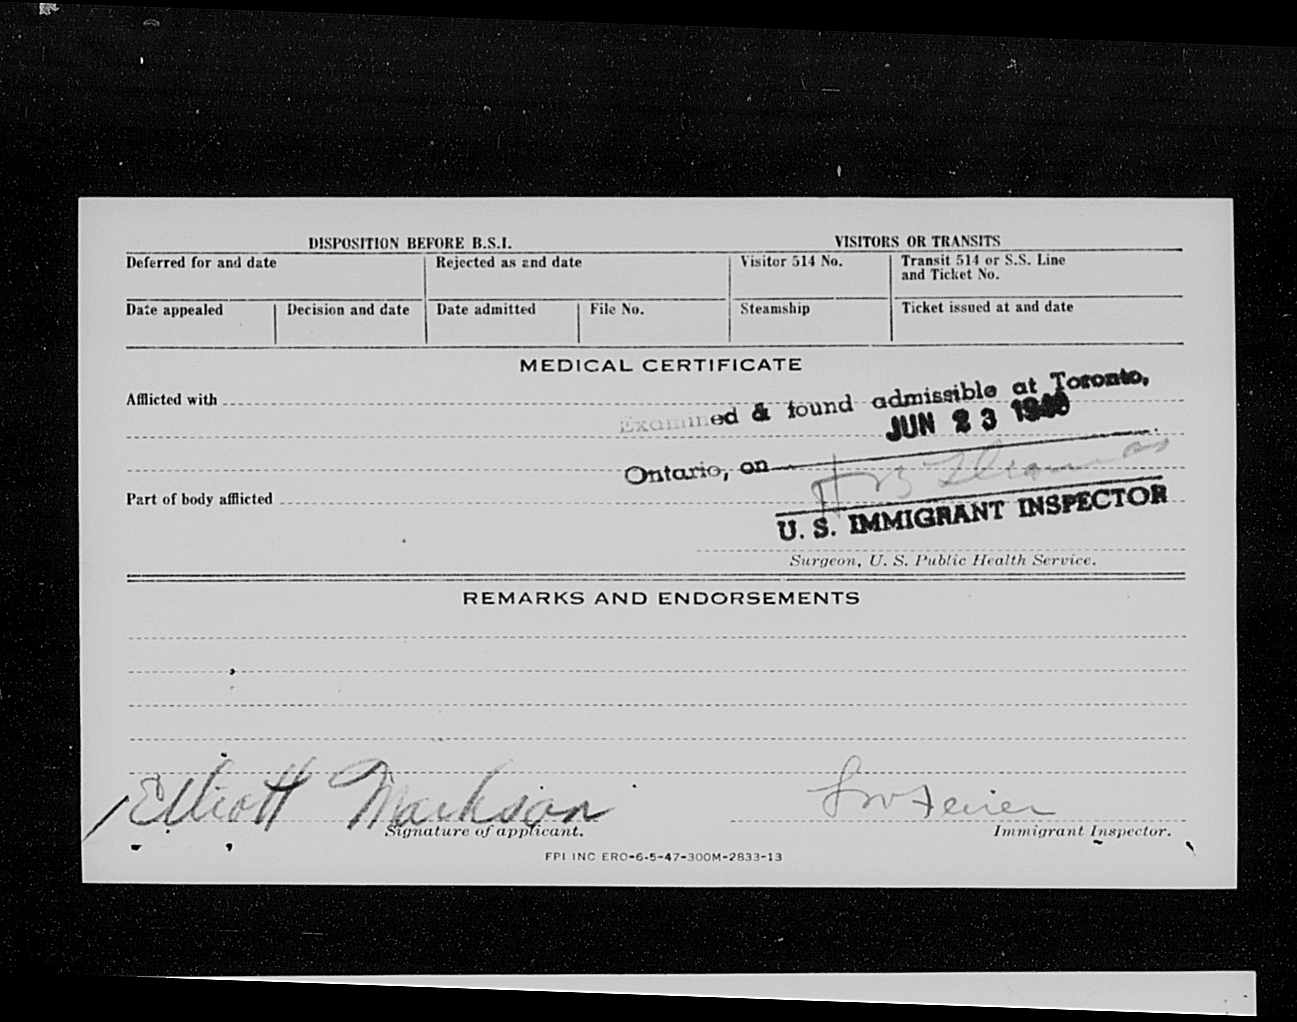 DISPOSITION BEFORE B.S.I. VISITORS OR TRANSITS
Deferred for and date Rejected as and date Visitor 514 No. Transit 514 or S.S. Line
and Ticket No.
Date appealed Decision and date Date admitted File No. Steamship Ticket issued at and date
MEDICAL CERTIFICATE
Afflicted with
Examined & found admissible at Toronto,
JUN 23
Ontario, on
Part of body afflicted
U. S. IMMIGRANT INSPECTOR
Surgeon, U. S. Public Health Service.
REMARKS AND ENDORSEMENTS
Elliott Markson
Signature of applicant. Immigrant Inspector.
FPI INC ERO-6-5-47-300M-2833-13